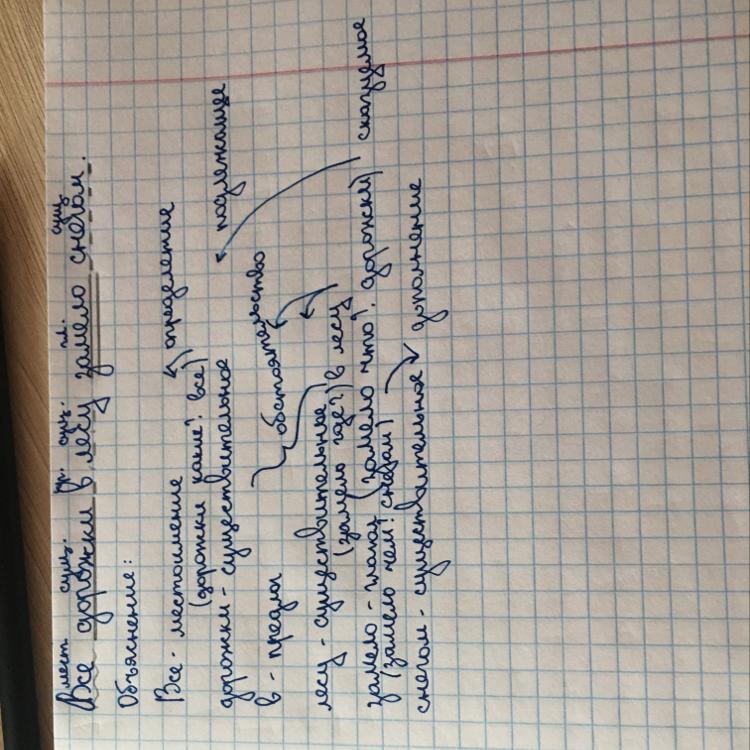 мест сущ. пр. сущ. гл. сущ
Все дорожки в лесу замело снегом.
Объяснение:
Все - местоимение
(дорожки какие? все) определение
дорожки - существительное подлежащее
в - предлог обстоятельство
лесу - существительное
(замело где?) в лесу
замело - глагол (замело что? дорожки) сказуемое
(замело чем? снегом)
снегом - существительное дополнение